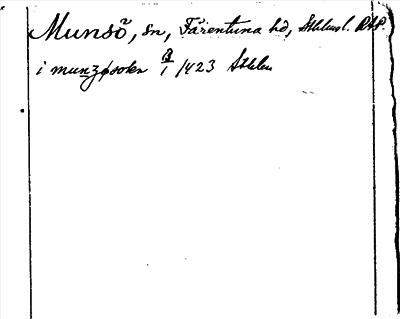 Munsö, sn, Färentuna hd, Sthlmsl. RAP.
i munzøsokn 8/1 1423 Sthlm